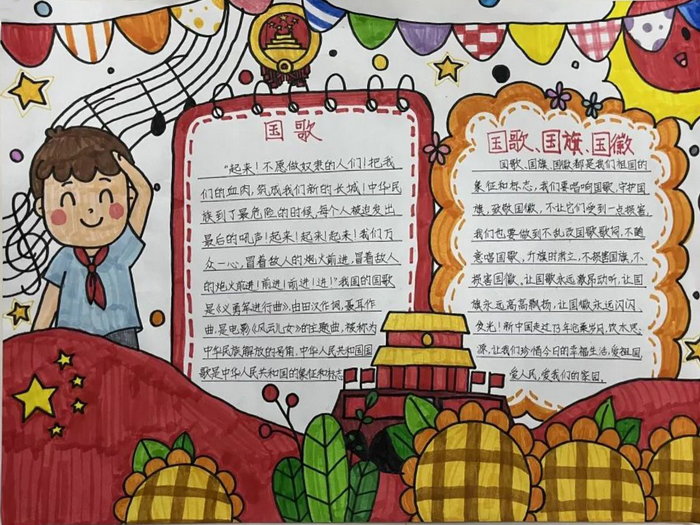 国歌
"起来！不愿做奴隶的人们！把我
们的血肉，筑成我们新的长城！中华民
族到了最危险的时候，每个人被迫发出
最后的吼声！起来！起来！起来！我们万
众一心，冒着敌人的炮火前进，冒着敌人
的炮火前进！前进！前进！进！"我国的国歌
是《义勇军进行曲》，由田汉作词，聂耳作
曲，是电影《风云儿女》的主题曲，被称为
中华民族解放的号角，中华人民共和国国
歌是中华人民共和国的象征和标志
国歌、国旗、国徽
国歌、国旗、国徽都是我们祖国的
象征和标志，我们要唱响国歌，守护国
旗，致敬国徽，不让它们受到一点损害，
我们也要做到不乱改国歌歌词，不随
意唱国歌，升旗时肃立，不损害国旗，不
损害国徽、让国歌永远激昂动听，让国
旗永远高高飘扬，让国徽永远闪闪
发光！新中国走过73年屹立东风，饮水思
源，让我们珍惜今日的幸福生活，爱祖国，
爱人民，爱我们的家园。